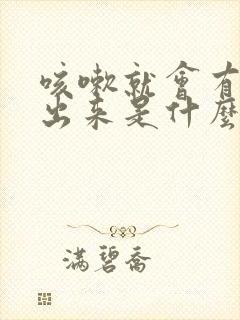 咳嗽就會有
出来是什麼
滿碧喬